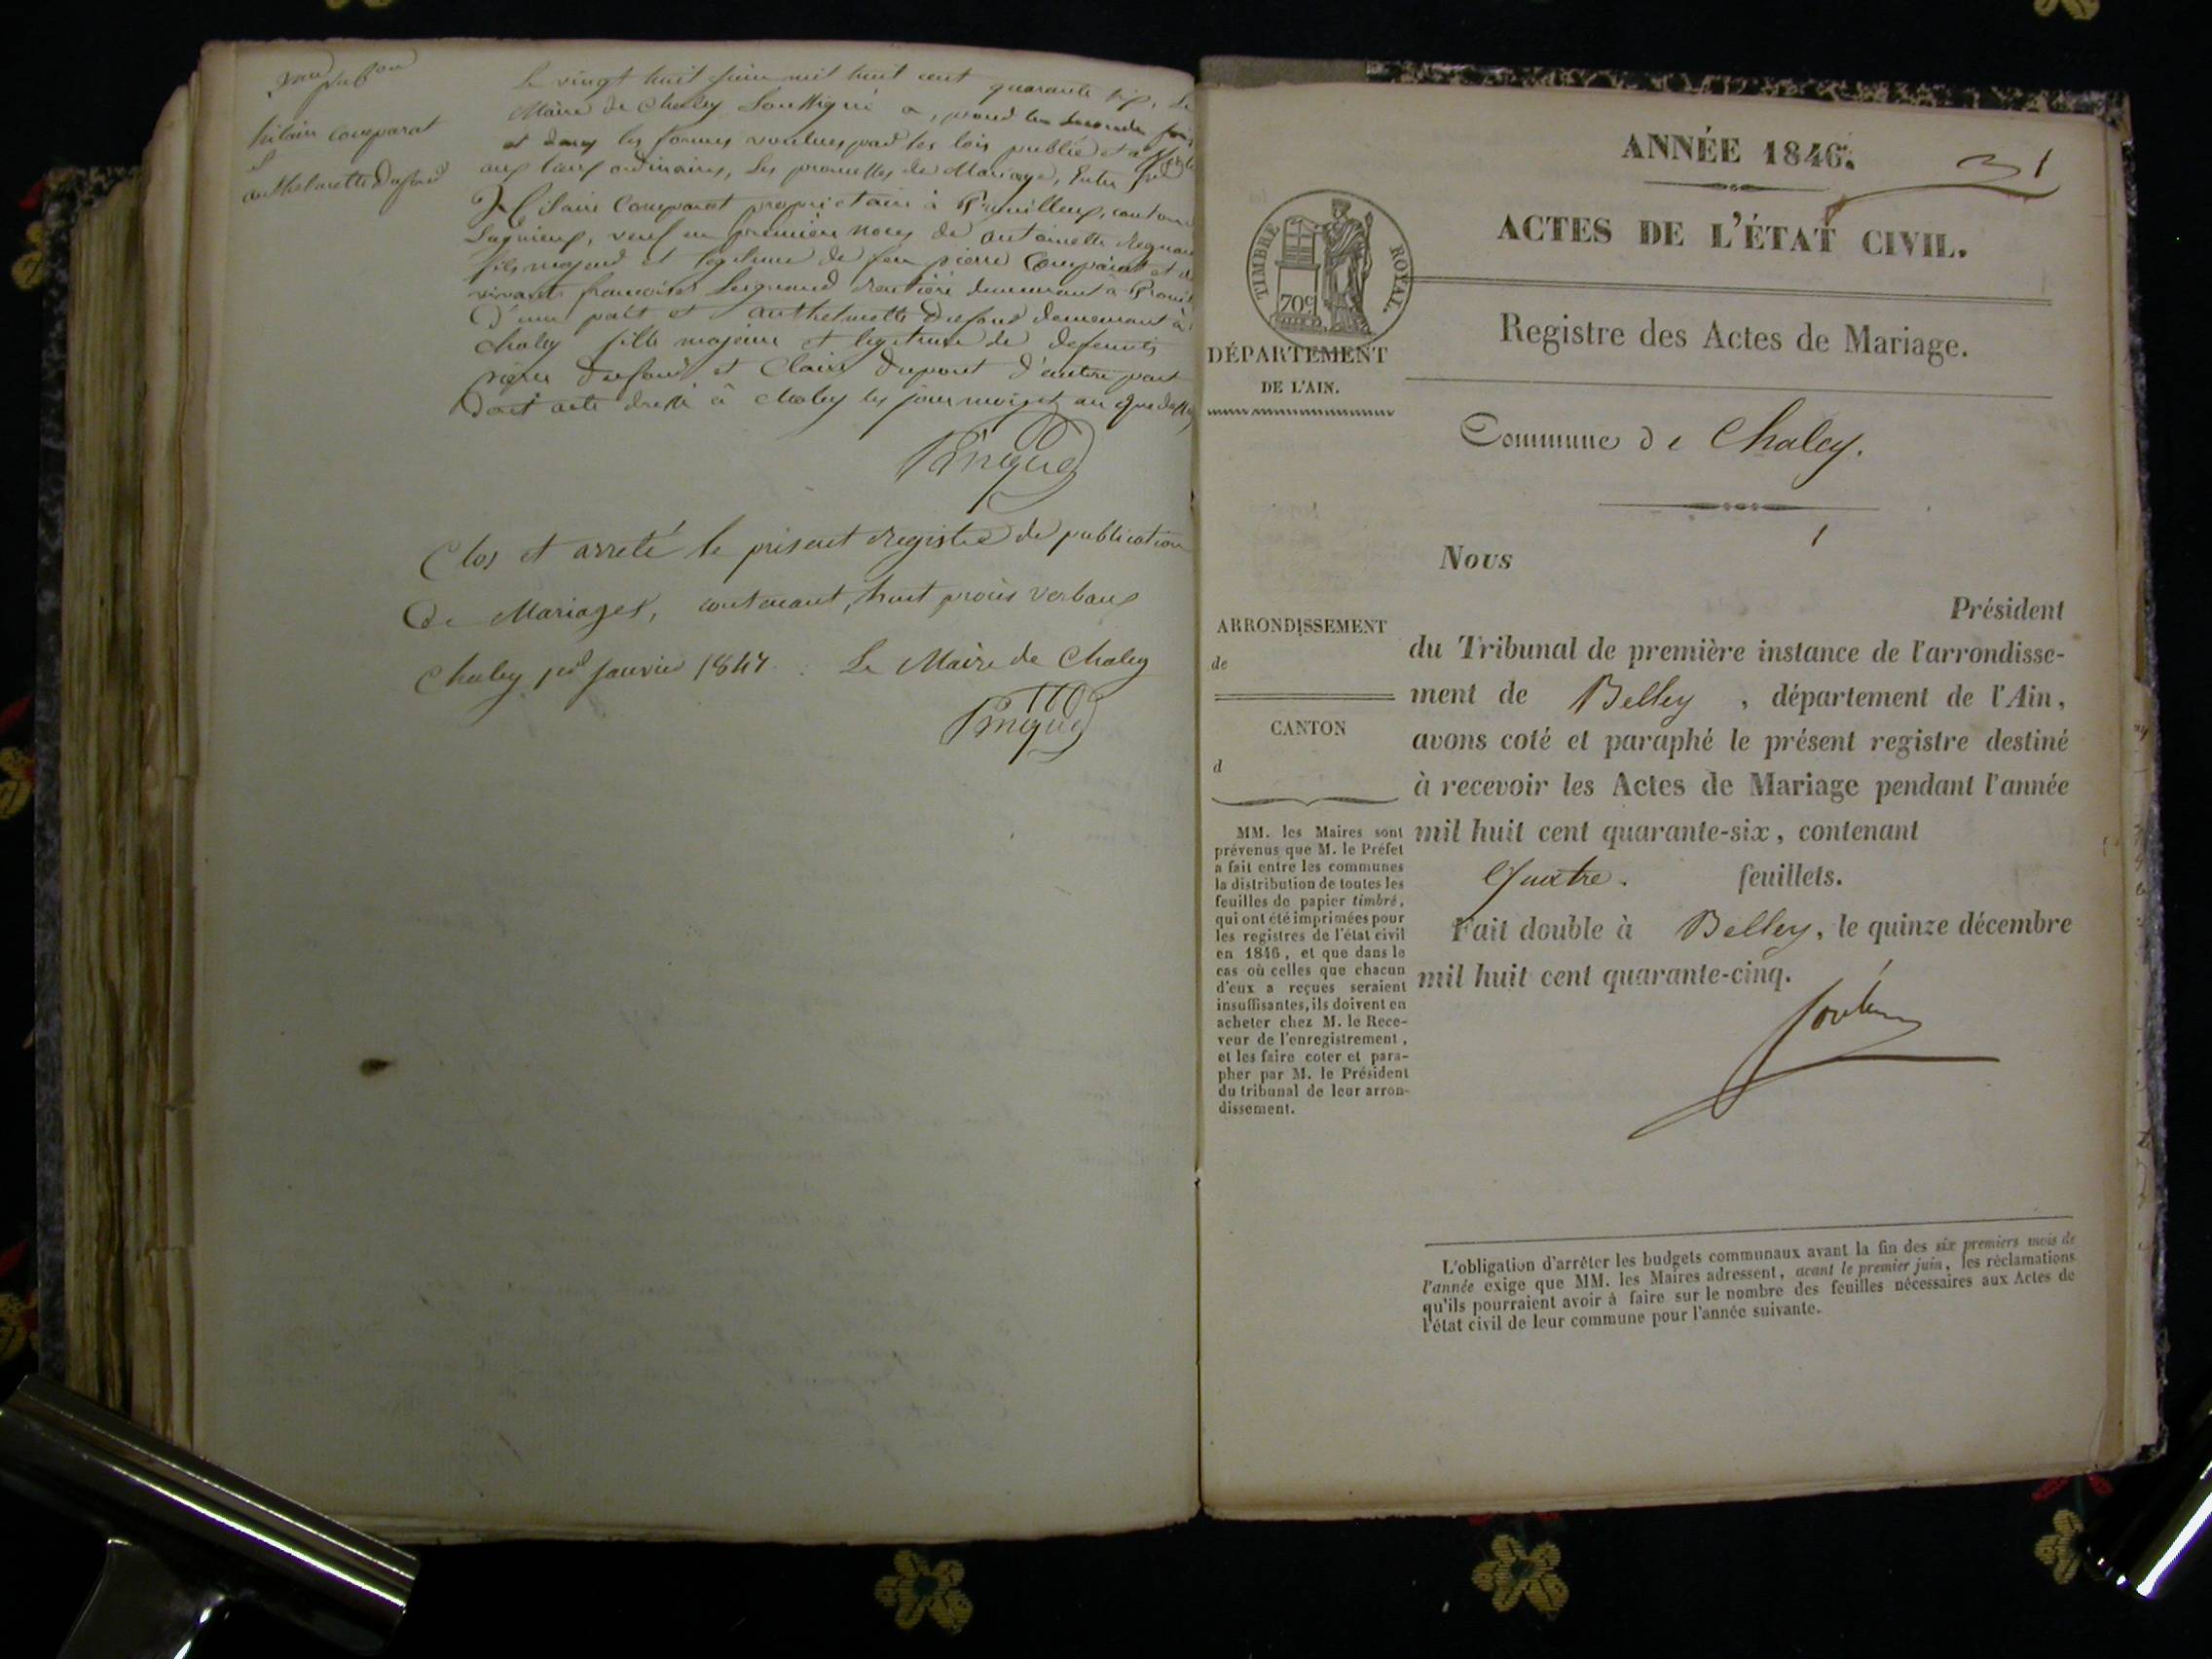 hilaire comparat
et
anthelmette Dufour
Le vingt huit juin mil huit cent quarante six, Le
Maire de Chaley Soussigné a, pour la seconde fois
et dans les formes voulues par les lois publié et affiché
aux lieux ordinaires, les promesses de Mariage, Entre
Hilaire Comparat proprietaire à canton
Lagnieux, veuf en premiere noces de antoinette
fils majeur et legitime de feu pierre Comparat et de
vivante francoise rentière demeurant à
D'une part et anthelmette Dufour demeurant à
chaley fille majeure et legitime de defunts
Dufour et Claire Dupont d'autre part
Dont acte dressé à chaley les jour mois et an que dessus
Clos et arreté le présent registre de publication
De Mariages, contenant, huit procès verbaux
Chaley 1er janvier 1847. Le Maire de Chaley
ANNÉE 1846.
31
ACTES DE L'ÉTAT CIVIL.
TIMBRE ROYAL.
70c
DÉPARTEMENT
DE L'AIN.
Registre des Actes de Mariage.
Commune de Chaley.
1
Nous
Président
du Tribunal de première instance de l'arrondisse-
ment de Belley, département de l'Ain,
avons coté et paraphé le présent registre destiné
à recevoir les Actes de Mariage pendant l'année
mil huit cent quarante-six, contenant
Quatre. feuillets.
Fait double à Belley, le quinze décembre
mil huit cent quarante-cinq.
ARRONDISSEMENT
de
CANTON
d
MM. les Maires sont
prévenus que M. le Préfet
a fait entre les communes
la distribution de toutes les
feuilles de papier timbré,
qui ont été imprimées pour
les registres de l'état civil
en 1846, et que dans le
cas où celles que chacun
d'eux a reçues seraient
insuffisantes, ils doivent en
acheter chez M. le Rece-
veur de l'enregistrement,
et les faire coter et para-
pher par M. le Président
du tribunal de leur arron-
dissement.
L'obligation d'arrêter les budgets communaux avant la fin des six premiers mois de
l'année exige que MM. les Maires adressent, avant le premier juin, les réclamations
qu'ils pourraient avoir à faire sur le nombre des feuilles nécessaires aux Actes de
l'état civil de leur commune pour l'année suivante.